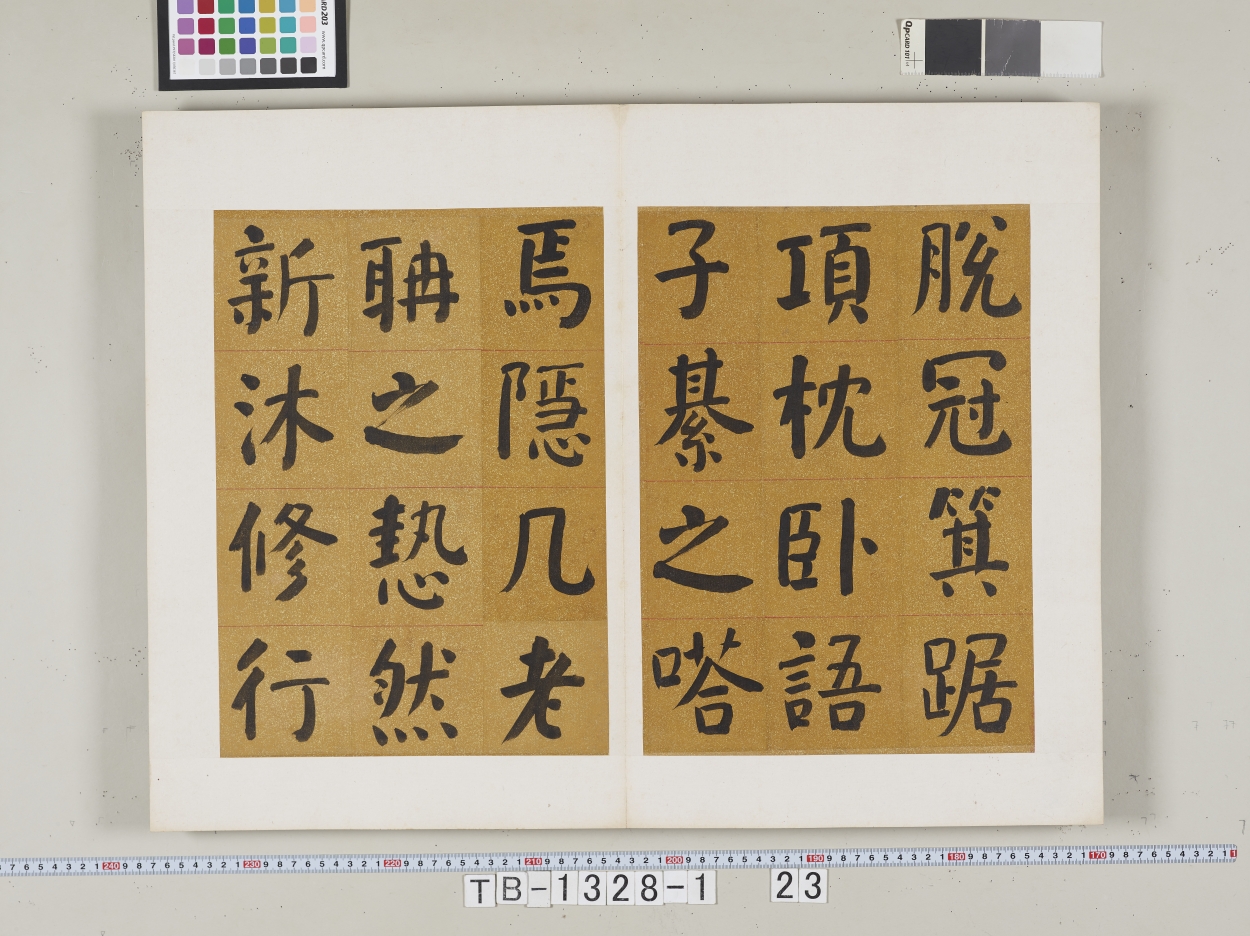 脫冠箕踞
項枕卧語
子綦之嗒
焉隱几老
聃之慹然
新沐修行
TB-1328-1 23